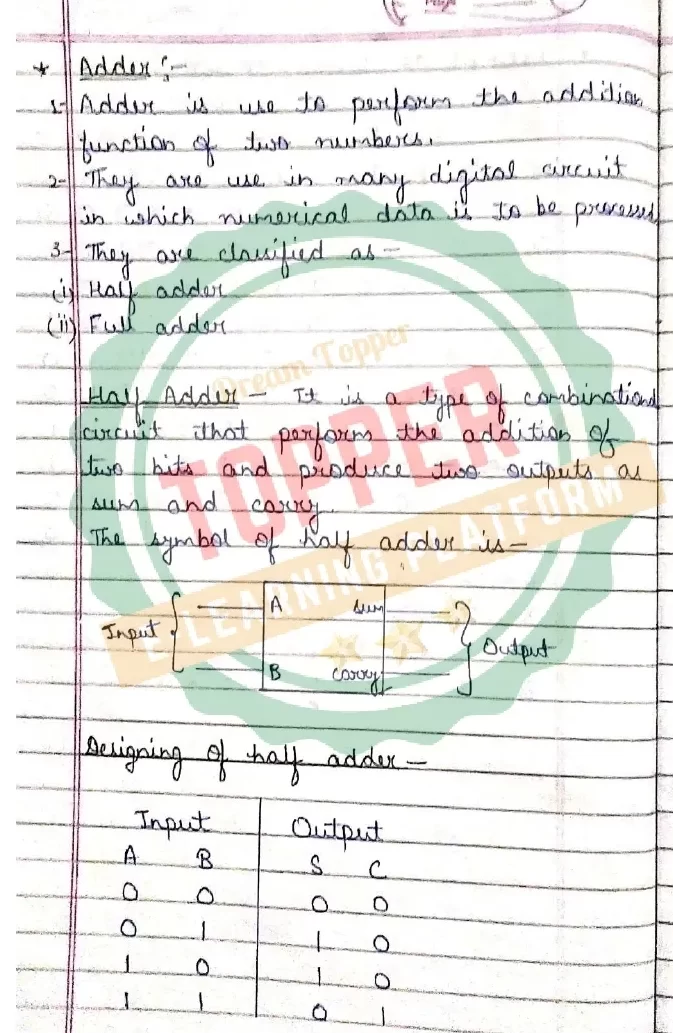 * Adder :-
1- Adder is use to perform the addition
function of two numbers.
2- They are use in many digital circuit
in which numerical data is to be processed
3- They are classified as -
(i) Half adder
(ii) Full adder
Dream Topper
TOPPER
E-LEARNING PLATFORM
Half Adder - It is a type of combinational
circuit that perform the addition of
two bits and produce two outputs as
sum and carry.
The symbol of half adder is -
A sum
Input Output
B carry
Designing of half adder -
Input Output
A B S C
0 0 0 0
0 1 1 0
1 0 1 0
1 1 0 1